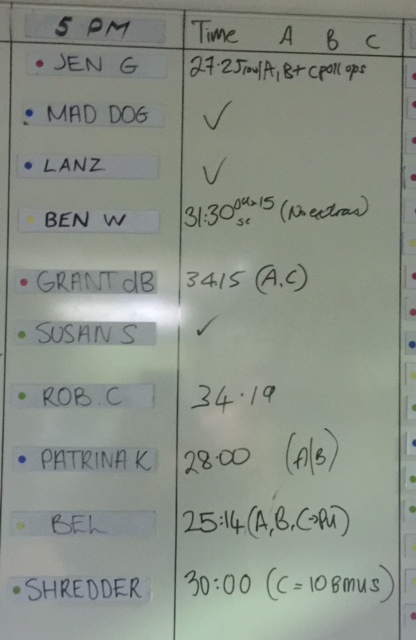 5 PM Time A B C
JEN G 27:25 row/A, B+C pull ups
MAD DOG ✓
LANZ ✓
BEN W 31:30 15 (No extras)
GRANT dB 3415 (A.C)
SUSAN S ✓
ROB.C 34.19
PATRINA K 28:00 (A/B)
BEL 25:14 (A, B, C→PU)
SHREDDER 30:00 (C = 10 BMUS)